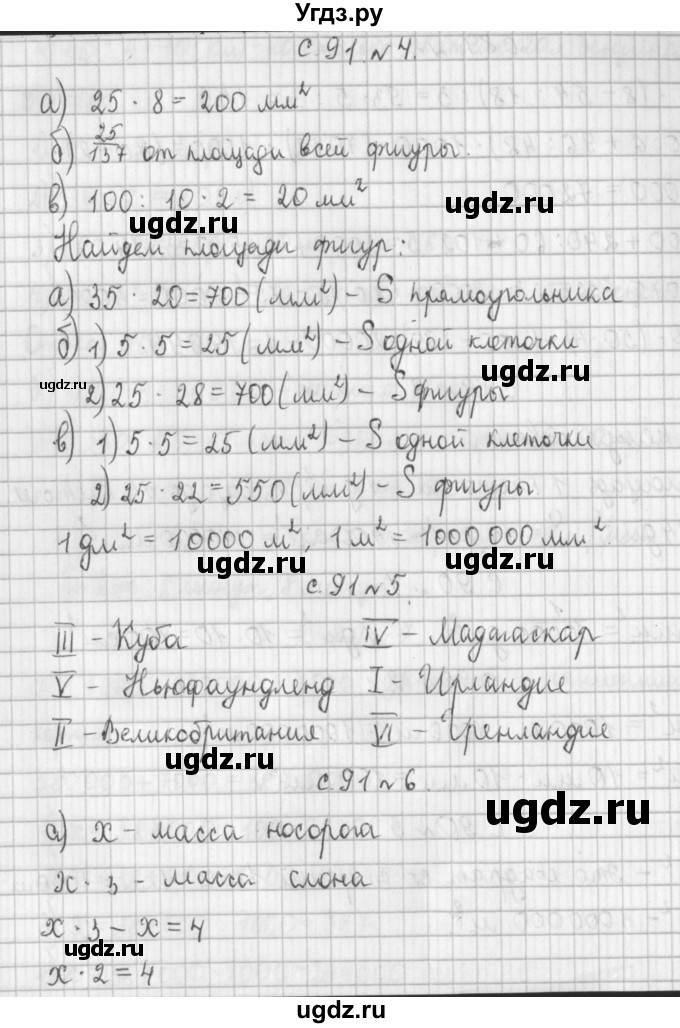 Угдз.ру
с. 91 № 4.
а) 25 · 8 = 200 мм²
б) 25/157 от площади всей фигуры.
в) 100 : 10 · 2 = 20 мм²
ugdz.ru
Найдем площади фигур:
ugdz.ru
а) 35 · 20 = 700 (мм²) – S прямоугольника
б) 1) 5 · 5 = 25 (мм²) – S одной клеточки
ugdz.ru
ugdz.ru
2) 25 · 28 = 700 (мм²) – S фигуры
в) 1) 5 · 5 = 25 (мм²) – S одной клеточки
ugdz.ru
2) 25 · 22 = 550 (мм²) – S фигуры
1 дм² = 10000 м², 1 м² = 1000 000 мм².
ugdz.ru
ugdz.ru
с. 91 № 5.
III – Куба IV – Мадагаскар
ugdz.ru
V – Ньюфаундленд I – Ирландие
II – Великобритания VI – Гренландие
ugdz.ru
с. 91 № 6.
ugdz.ru
а) x – масса носорога
x · 3 – масса слона
ugdz.ru
x · 3 – x = 4
ugdz.ru
x · 2 = 4
ugdz.ru